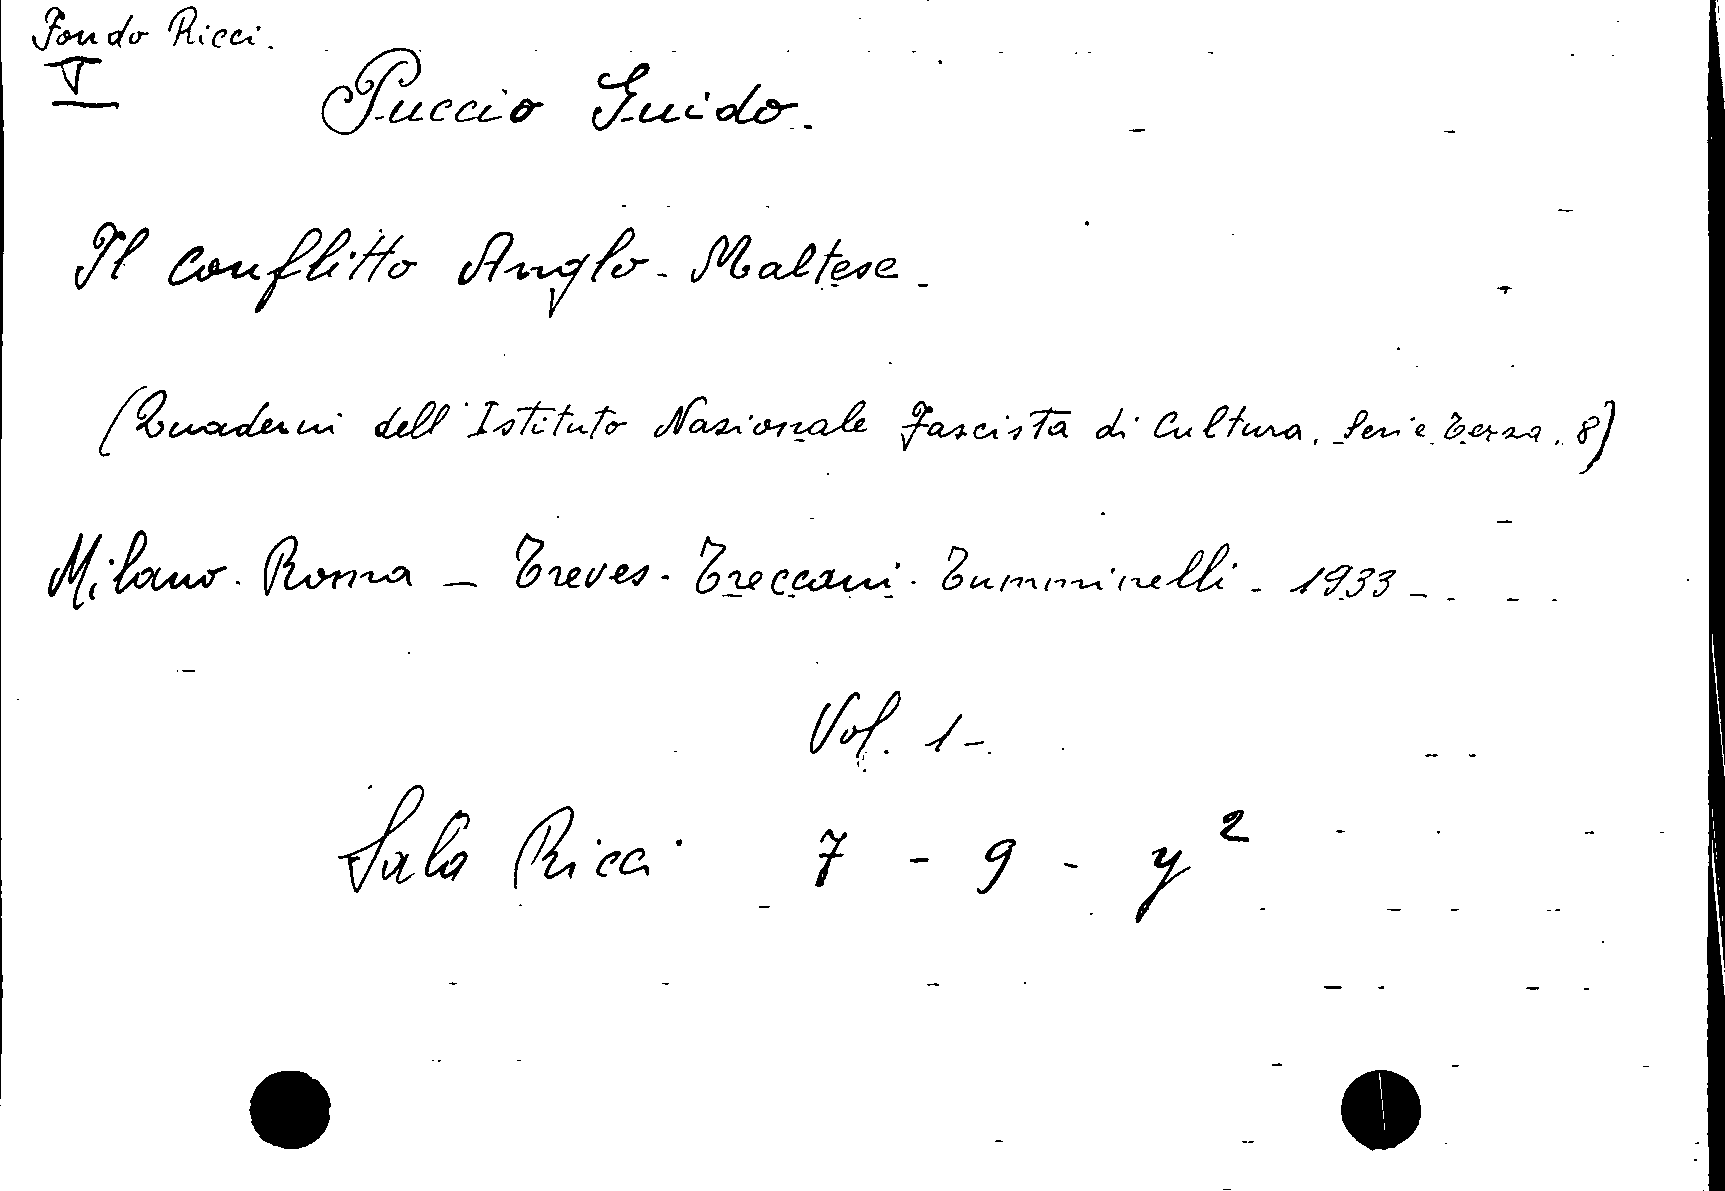 Fondo Ricci.
V
Puccio Guido.
Il conflitto Anglo-Maltese.
(Quaderni dell'Istituto Nazionale Fascista di Cultura. Serie Terza. 8)
Milano. Roma – Treves. Treccani. Tumminelli - 1933 -
Vol. 1-
Sala Ricci 7 - 9 - y²